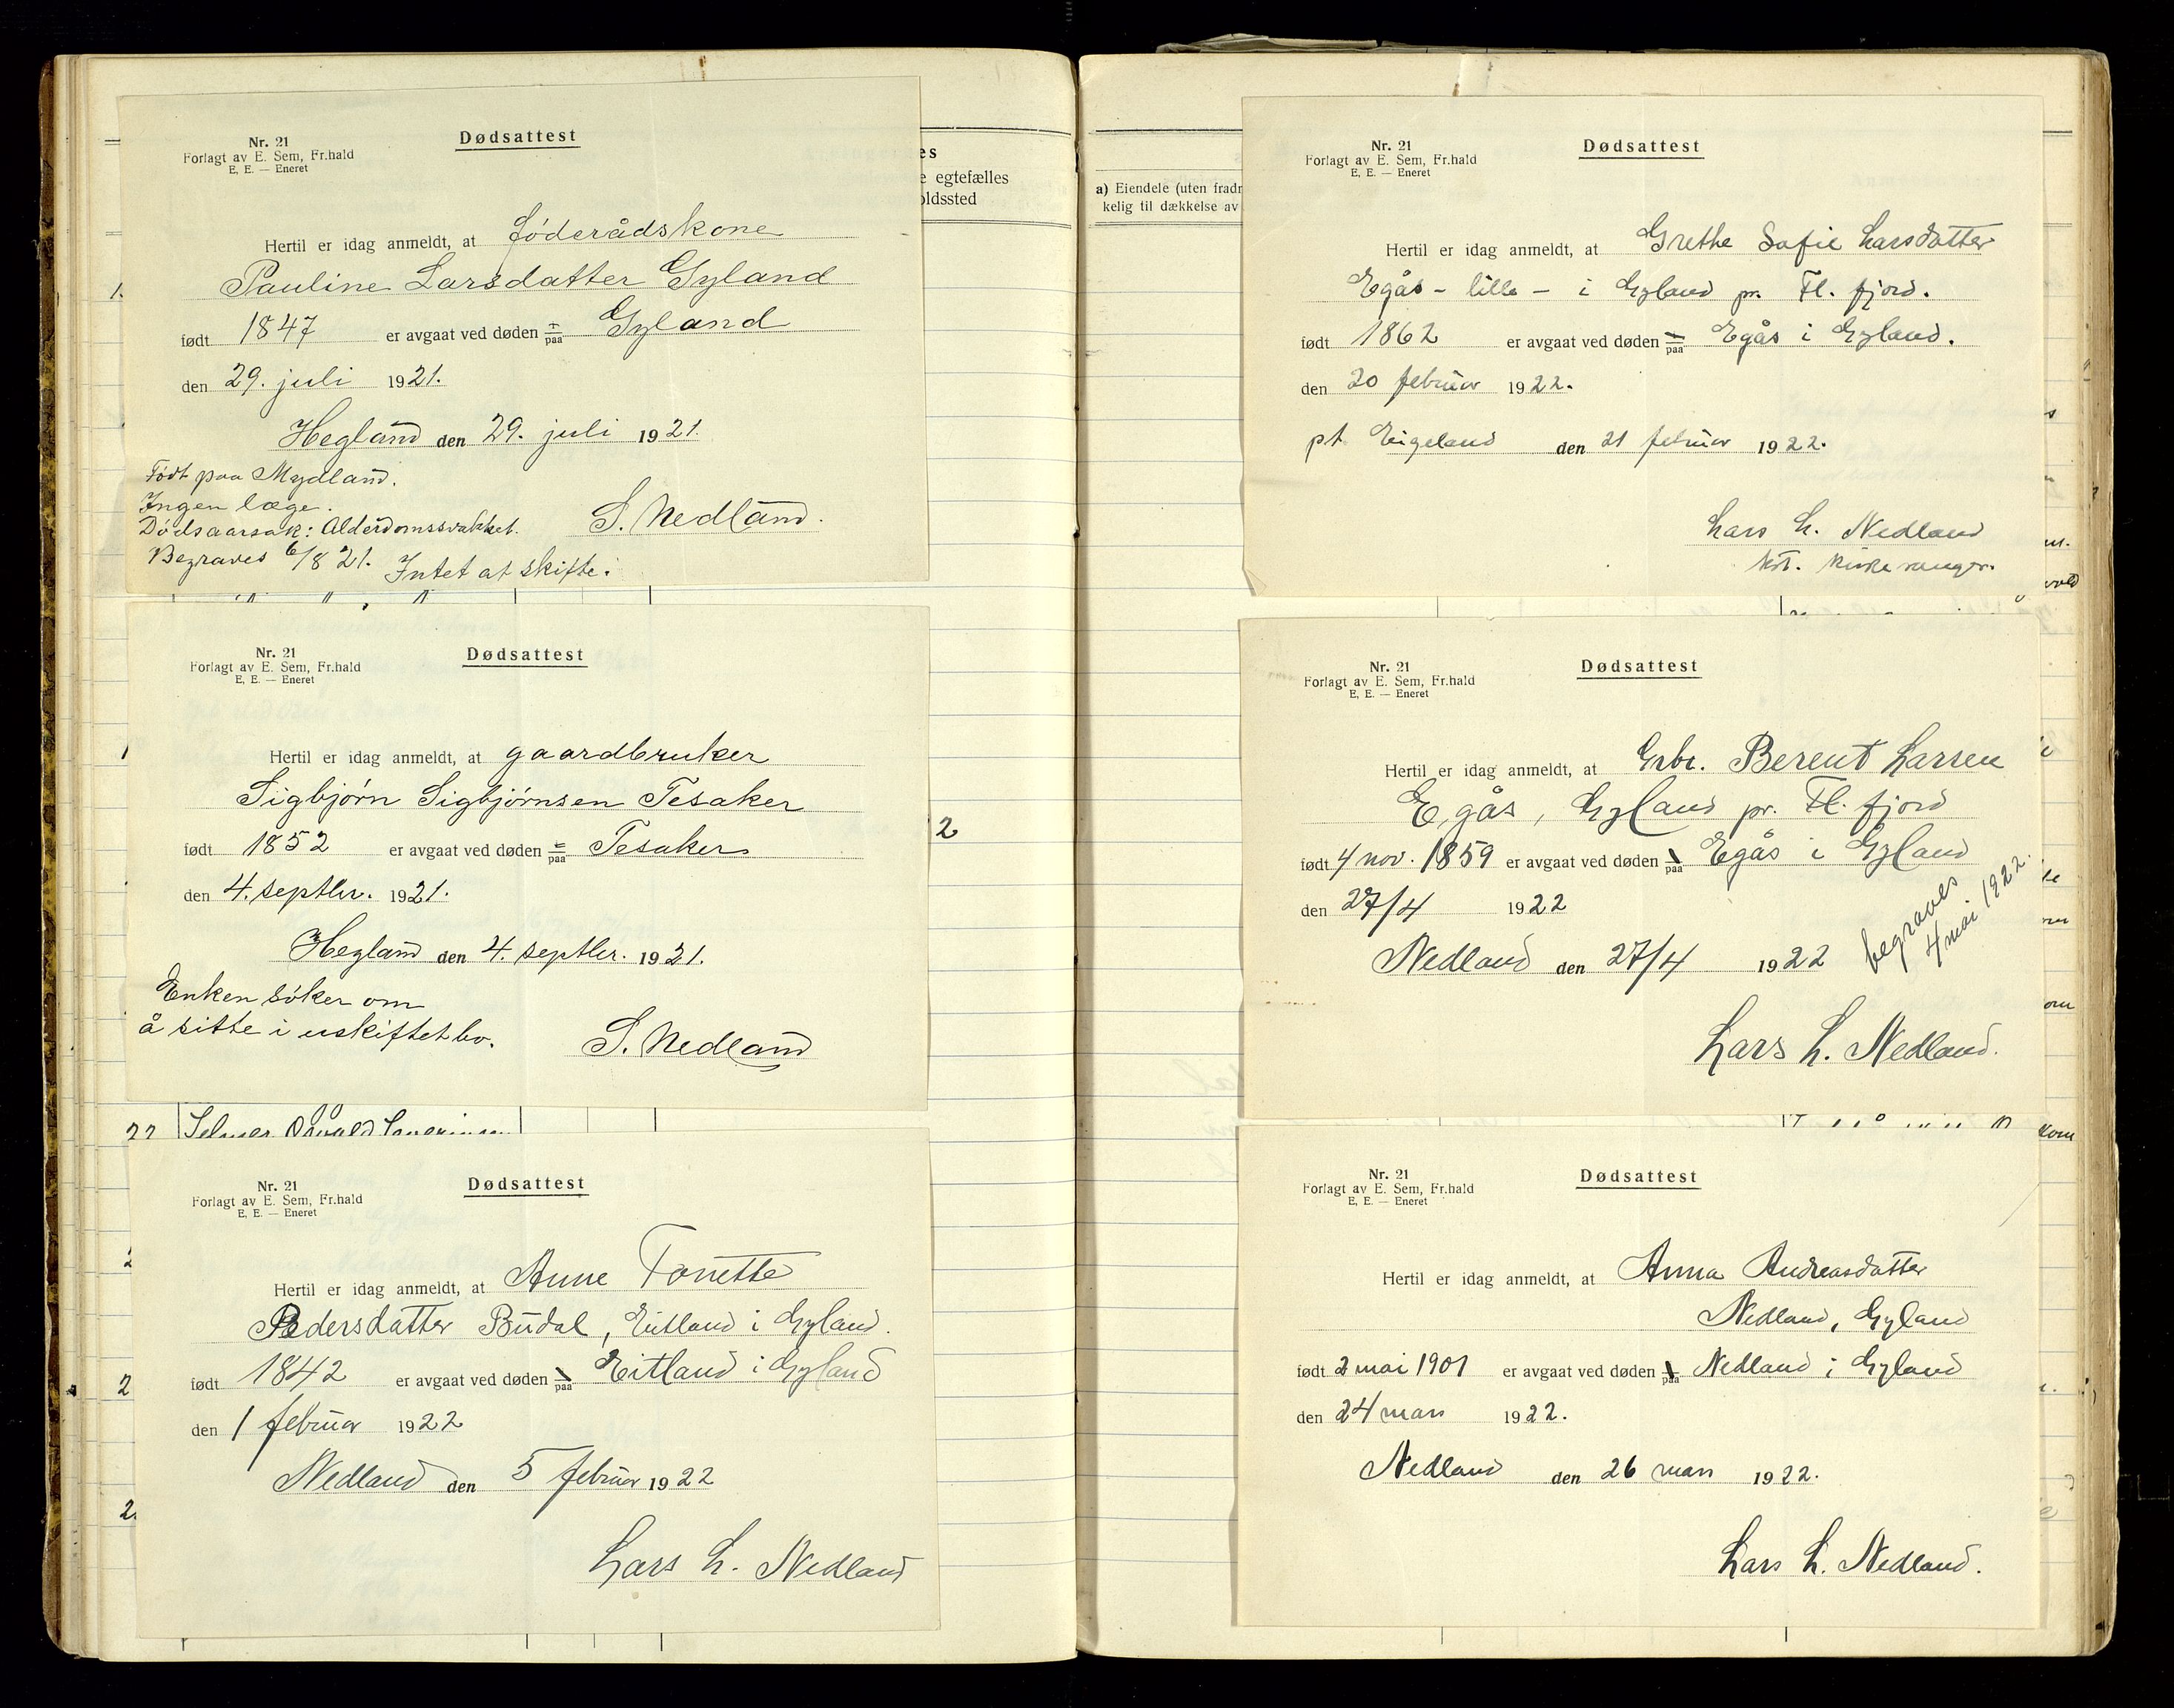 Nr. 21
Forlagt av E. Sem, Fr.hald
E. E. — Eneret
Dødsattest
Hertil er idag anmeldt, at føderådskone
Pauline Larsdatter Gyland
født 1847 er avgaat ved døden i/paa Gyland
den 29. juli 1921.
Hegland den 29. juli 1921.
Født paa Mydland.
Ingen læge.
Dødsaarsak: Alderdomssvakhet.
S. Nedland.
Begraves 6/8 21. Intet at skifte.
Nr. 21
Forlagt av E. Sem, Fr.hald
E. E. — Eneret
Dødsattest
Hertil er idag anmeldt, at gaardbruker
Sigbjørn Sigbjørnsen Tesaker
født 1852 er avgaat ved døden i/paa Tesaker
den 4. septbr. 1921.
Hegland den 4. septbr. 1921.
Enken søker om
å sitte i uskiftet bo.
S. Nedland
22 Selmer Osvald
Nr. 21
Forlagt av E. Sem, Fr.hald
E. E. — Eneret
Dødsattest
Hertil er idag anmeldt, at Anne Tonette
Pedersdatter Budal, Eitland i Gyland.
født 1842 er avgaat ved døden i/paa Eitland i Gyland
den 1 februar 1922
Nedland den 5 februar 1922
Lars L. Nedland
es
e egtefælles
oldssted
2
a) Eiendele (uten fradr
kelig til dækkelse av
Nr. 21
Forlagt av E. Sem, Fr.hald
E. E. — Eneret
Dødsattest
Hertil er idag anmeldt, at Grethe Sofie Larsdatter
Egås - lille - i Gyland pr. Fl. fjord.
født 1862 er avgaat ved døden i/paa Egås i Gyland.
den 20 februar 1922.
pt. Eigeland den 21 februar 1922.
Lars L. Nedland
kst. kirkesanger.
Nr. 21
Forlagt av E. Sem, Fr.hald
E. E. — Eneret
Dødsattest
Hertil er idag anmeldt, at Grbr. Berent Larsen
Egås, Gyland pr. Fl. fjord
født 4 nov. 1859 er avgaat ved døden i/paa Egås i Gyland
den 27/4 1922
Nedland den 27/4 1922
begraves
4 mai 1922.
Lars L. Nedland.
Nr. 21
Forlagt av E. Sem, Fr.hald
E. E. — Eneret
Dødsattest
Hertil er idag anmeldt, at Anna Andreasdatter
Nedland, Gyland
født 2 mai 1901 er avgaat ved døden i/paa Nedland i Gyland
den 24 mars 1922.
Nedland den 26 mars 1922.
Lars L. Nedland.